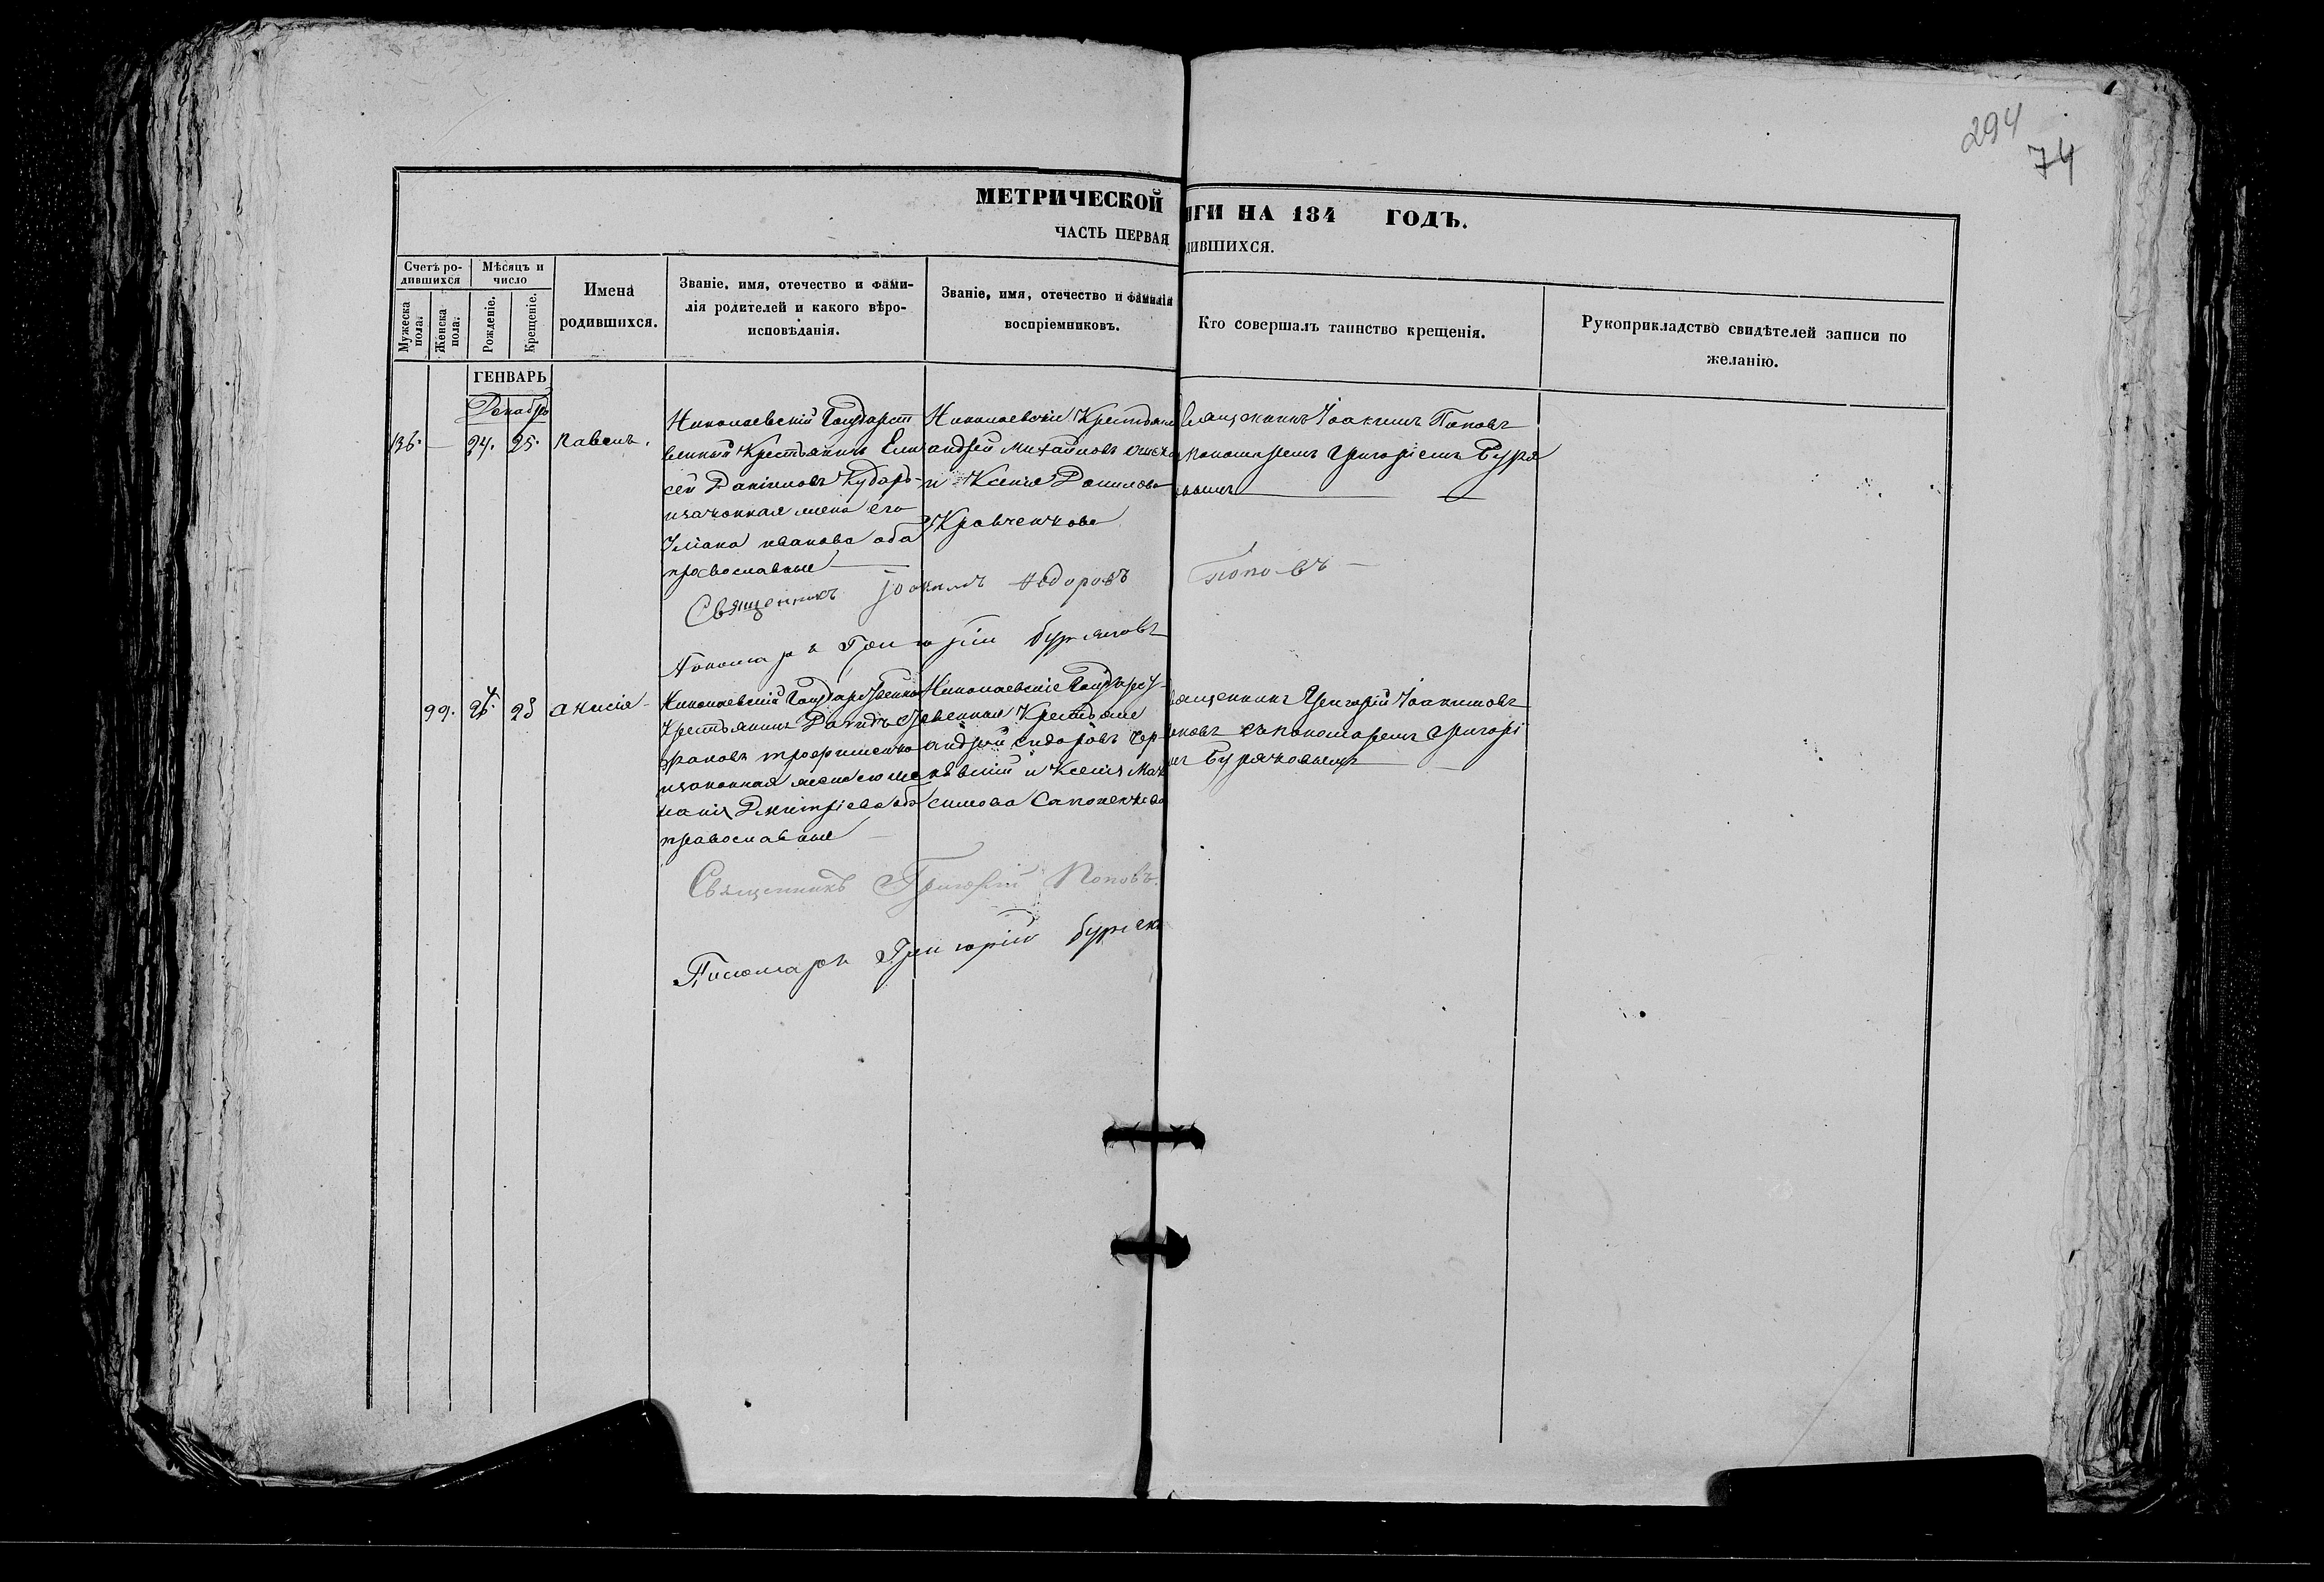 294
74
МЕТРИЧЕСКОЙ
ИГИ НА 184 ГОДЪ.
ЧАСТЬ ПЕРВАЯ
ДИВШИХСЯ.
Счетъ ро-
дившихся
Мѣсяцъ и
число
Мужеска
пола.
Женска
пола.
Рожденіе.
Крещеніе.
Имена
родившихся.
Званіе, имя, отечество и фами-
лія родителей и какого вѣро-
исповѣданія.
Званіе, имя, отечество и фамилія
воспріемниковъ.
Кто совершалъ таинство крещенія.
Рукоприкладство свидѣтелей записи по
желанію.
ГЕНВАРЬ
Декабрь
136. 24. 25. Павелъ.
Николаевскій Государст
венный Крестьянинъ Ели
сей Даніиловъ
изаконная жена его
Иванова оба
православные
Николаевскіе Крестьяне
андрей Михайловъ
и Ксенія Данилова
Кравченкова
вященникъ Іоакимъ Поповъ
пономаремъ Григоріемъ Буря
ковымъ
Священникъ Іоакимъ Федоровъ Поповъ
Пономарь Григорій Буряковъ
99. 28 Анисія
Николаевскій Государственный
Крестьянинъ Давидъ
изаконная жена его
Дмитріева оба
православные
Николаевскіе Государст
венныя Крестьяне
андрей Сидоровъ Чер
и Ксенія Мак
симова
вященникъ Григорій Іоакимовъ
оповъ съ пономаремъ Григорі
мъ Буряковымъ
Священникъ Григорій Поповъ.
Пономарь Григорій Буряк